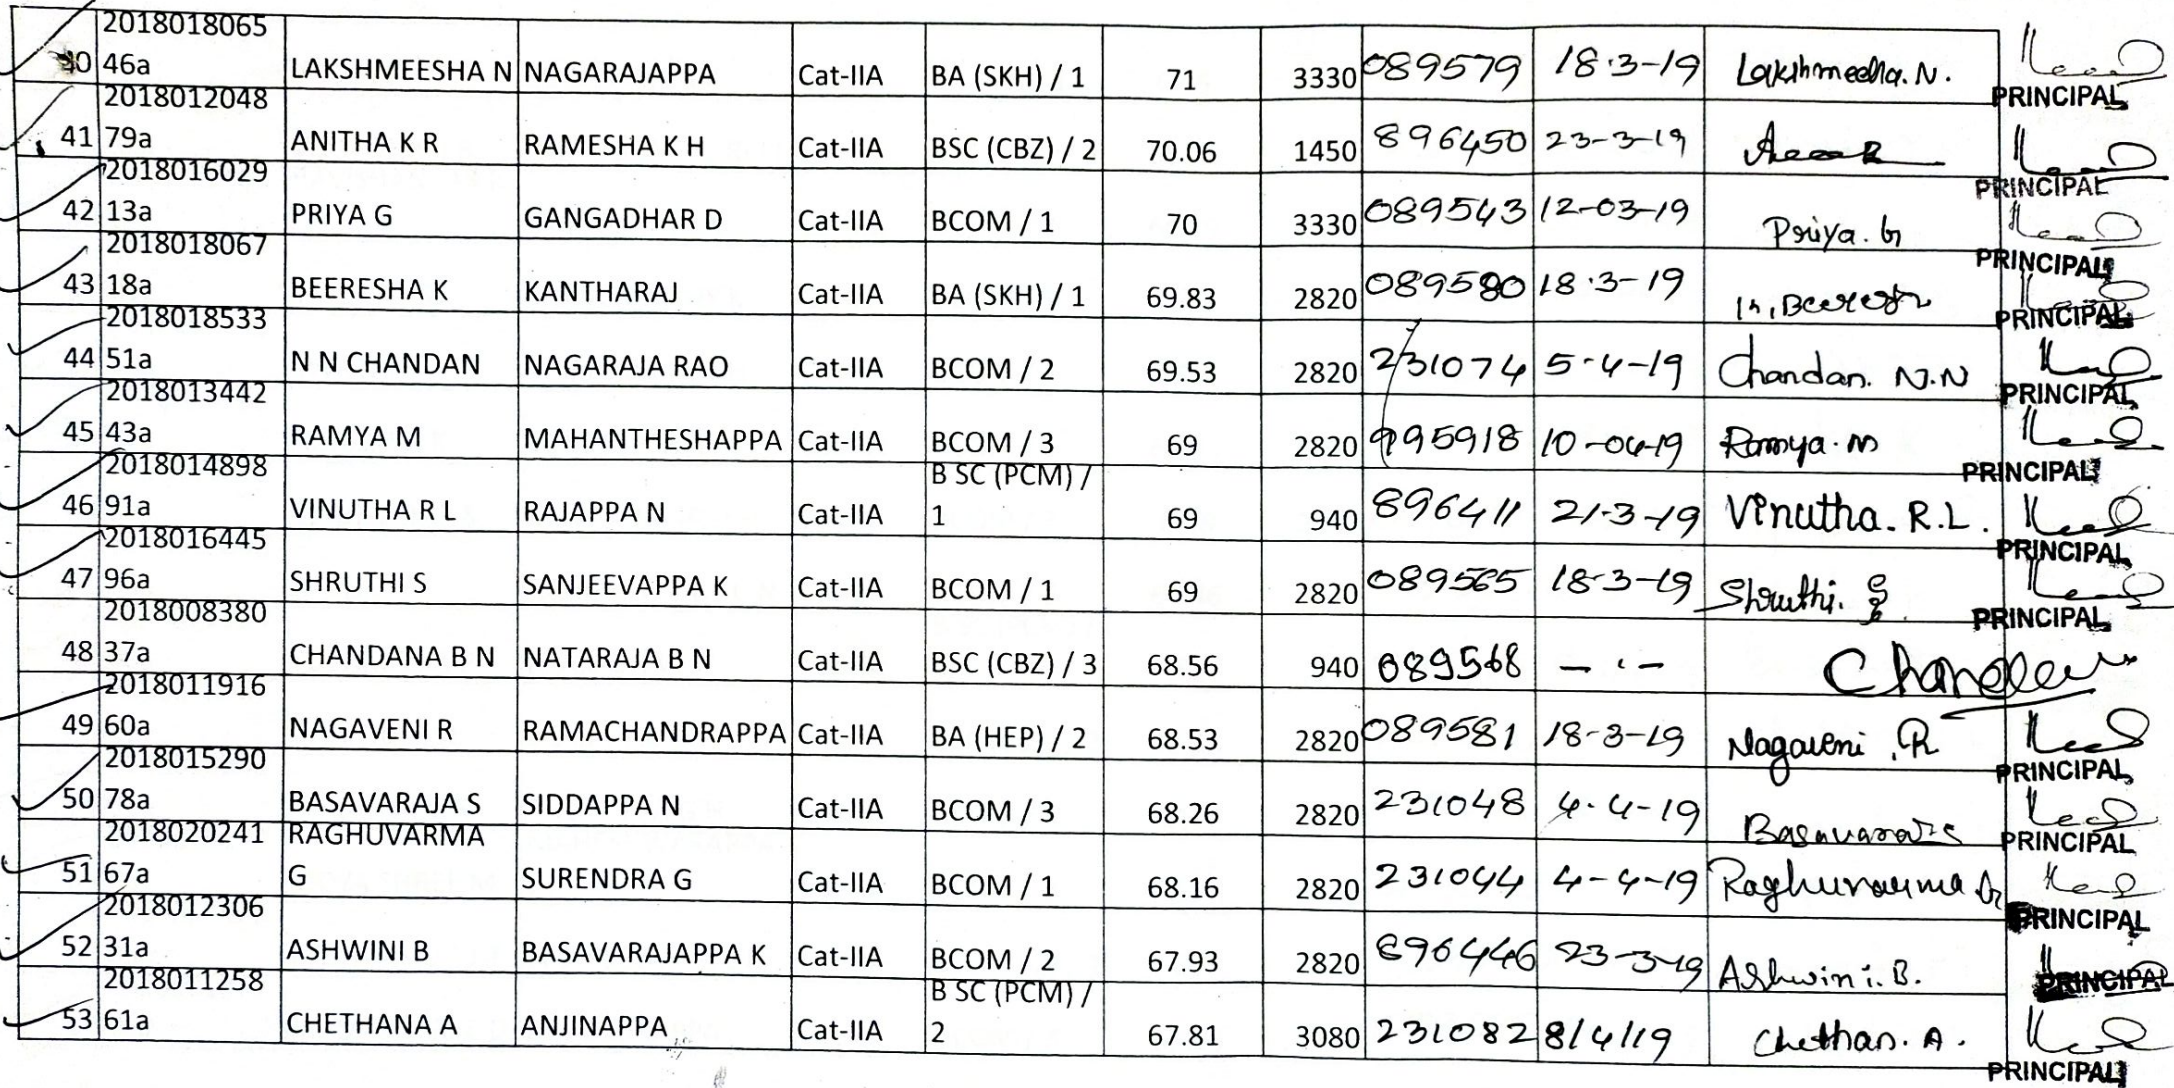 2018018065
40 46a LAKSHMEESHA N NAGARAJAPPA Cat-IIA BA (SKH) / 1 71 3330 089579 18.3-19 Lakshmeesha. N.
PRINCIPAL
2018012048
41 79a ANITHA K R RAMESHA K H Cat-IIA BSC (CBZ) / 2 70.06 1450 896450 23-3-19
PRINCIPAL
2018016029
42 13a PRIYA G GANGADHAR D Cat-IIA BCOM / 1 70 3330 089543 12-03-19 Priya. G
PRINCIPAL
2018018067
43 18a BEERESHA K KANTHARAJ Cat-IIA BA (SKH) / 1 69.83 2820 089580 18.3-19
PRINCIPAL
2018018533
44 51a N N CHANDAN NAGARAJA RAO Cat-IIA BCOM / 2 69.53 2820 231074 5-4-19 Chandan. N.N
PRINCIPAL
2018013442
45 43a RAMYA M MAHANTHESHAPPA Cat-IIA BCOM / 3 69 2820 995918 10-04-19 Ramya. M
PRINCIPAL
2018014898 B SC (PCM) /
46 91a VINUTHA R L RAJAPPA N Cat-IIA 1 69 940 896411 21-3-19 Vinutha. R.L.
PRINCIPAL
2018016445
47 96a SHRUTHI S SANJEEVAPPA K Cat-IIA BCOM / 1 69 2820 089565 18-3-19 Shruthi. S
PRINCIPAL
2018008380
48 37a CHANDANA B N NATARAJA B N Cat-IIA BSC (CBZ) / 3 68.56 940 089568 - " -
2018011916
49 60a NAGAVENI R RAMACHANDRAPPA Cat-IIA BA (HEP) / 2 68.53 2820 089581 18-3-19 Nagaveni .R
PRINCIPAL
2018015290
50 78a BASAVARAJA S SIDDAPPA N Cat-IIA BCOM / 3 68.26 2820 231048 4-4-19
PRINCIPAL
2018020241 RAGHUVARMA
51 67a G SURENDRA G Cat-IIA BCOM / 1 68.16 2820 231044 4-4-19 Raghuvarma G
PRINCIPAL
2018012306
52 31a ASHWINI B BASAVARAJAPPA K Cat-IIA BCOM / 2 67.93 2820 896446 23-3-19 Ashwini. B.
PRINCIPAL
2018011258 B SC (PCM) /
53 61a CHETHANA A ANJINAPPA Cat-IIA 2 67.81 3080 231082 8/4/19 Chethan. A.
PRINCIPAL